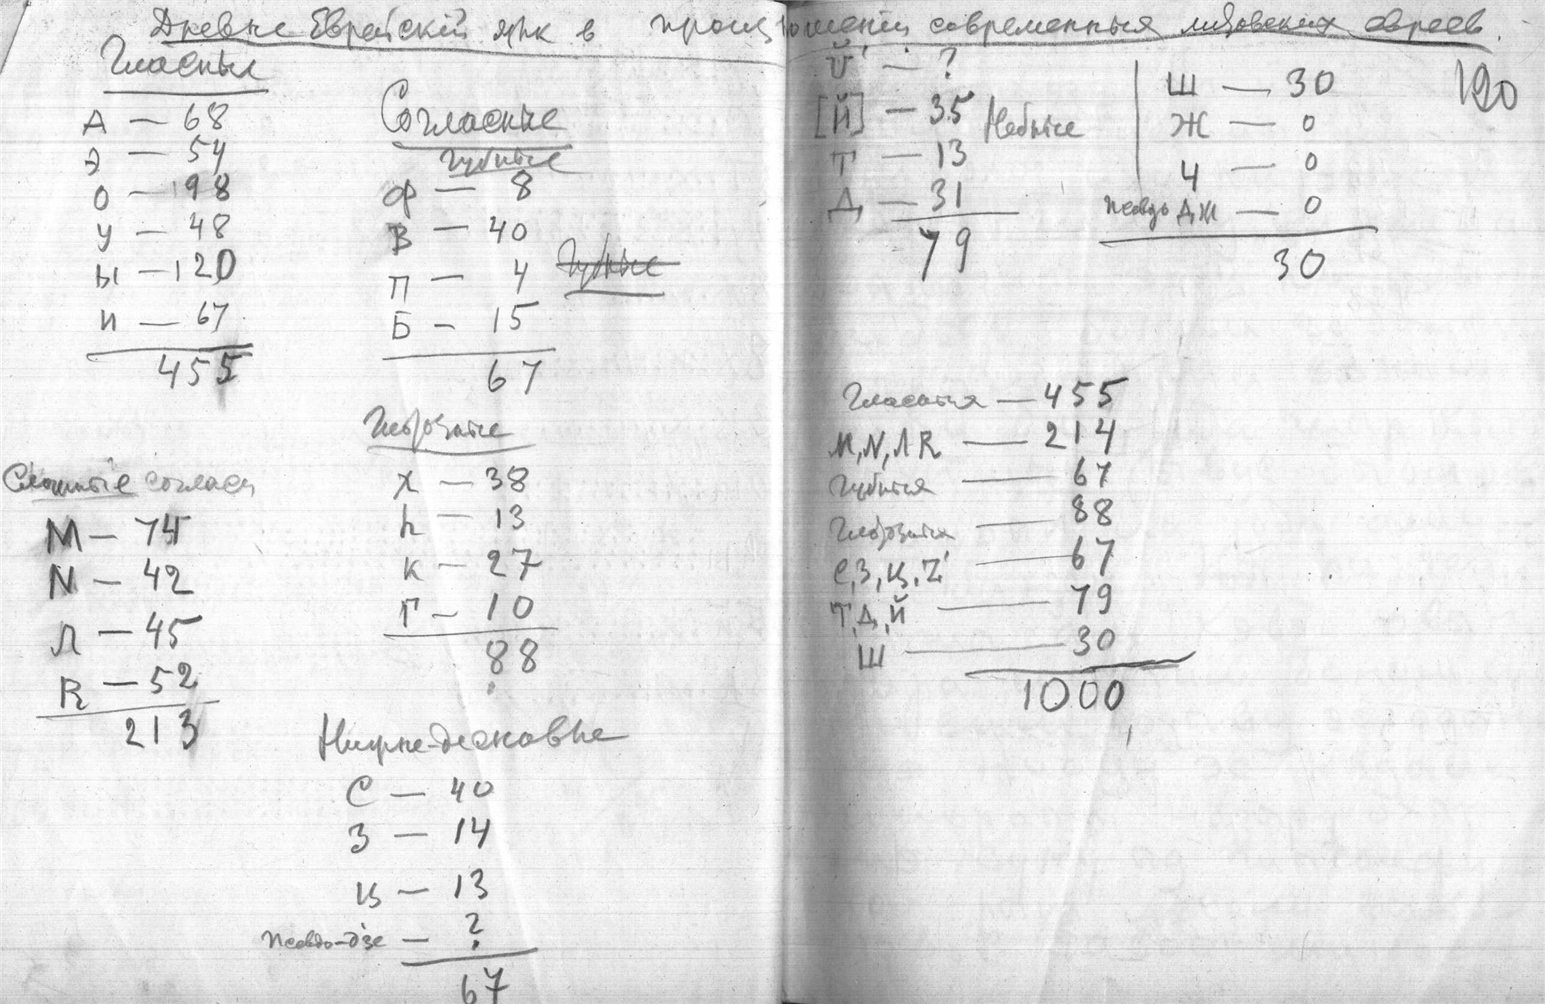 Древне Еврейский язк в произношении современных литовских евреев.
120
Гласныя
А — 68
Э — 54
О — 98
У — 48
Ы — 120
И — 67
455
Сложные согласн
М — 74
N — 42
Л — 45
R — 52
213
Согласные
Губные
Ф — 8
В — 40
П — 4
Б — 15
67
Губные
Гиброзные
Х — 38
h — 13
К — 27
Г — 10
88
С — 40
З — 14
Ц — 13
псевдо-дзе — ?
67
— ?
[Й] — 35
Небные
Т — 13
Д — 31
79
Ш — 30
Ж — 0
Ч — 0
псевдо ДЖ — 0
30
Гласныя — 455
М, N, Л R — 214
Губныя — 67
88
С, З, Ц, — 67
Т, Д, Й — 79
Ш — 30
1000